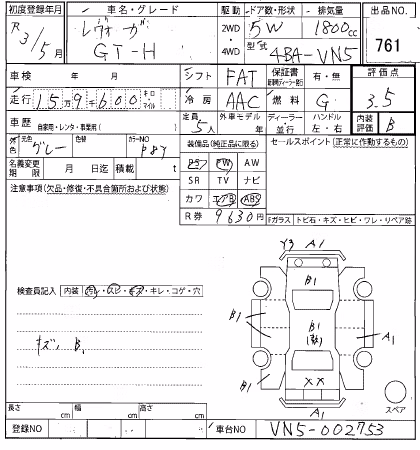 初度登録年月 車名・グレード 駆動 ドア数・形状 排気量 出品NO
R3/5月 レヴォーグ 2WD 5W 1800cc
GT-H 4WD 型式 4BA-VN5 761
車検 年 月 シフト FAT 保証書 有・無 評価点
走行 15万9千600 キロ マイル 冷房 AAC 燃料 G 3.5
車歴 自家用・レンタ・事業用( ) 定員 5人 外車モデル 年 ディーラー・並行 ハンドル 左・右 内装評価 B
外色 元色 グレー 色替 カラーNO P8Y 装備品(純正品に限る) セールスポイント(正常に作動するもの)
名義変更期限 月 日迄 積載 t PS PW AW
注意事項(欠品・修復・不具合箇所および状態) SR TV ナビ
カワ エアB ABS
R券 9630円
Fガラス トビ石・キズ・ヒビ・ワレ・リペア跡
Y3 A1
検査員記入 内装 ヨゴレ・スレ・キズ・キレ・コゲ・穴
B1
B1
B1
キズ、B1
A1
B1
XX
A1
スペア
長さ cm 幅 cm 高さ cm
登録NO 車台NO VN5-002753